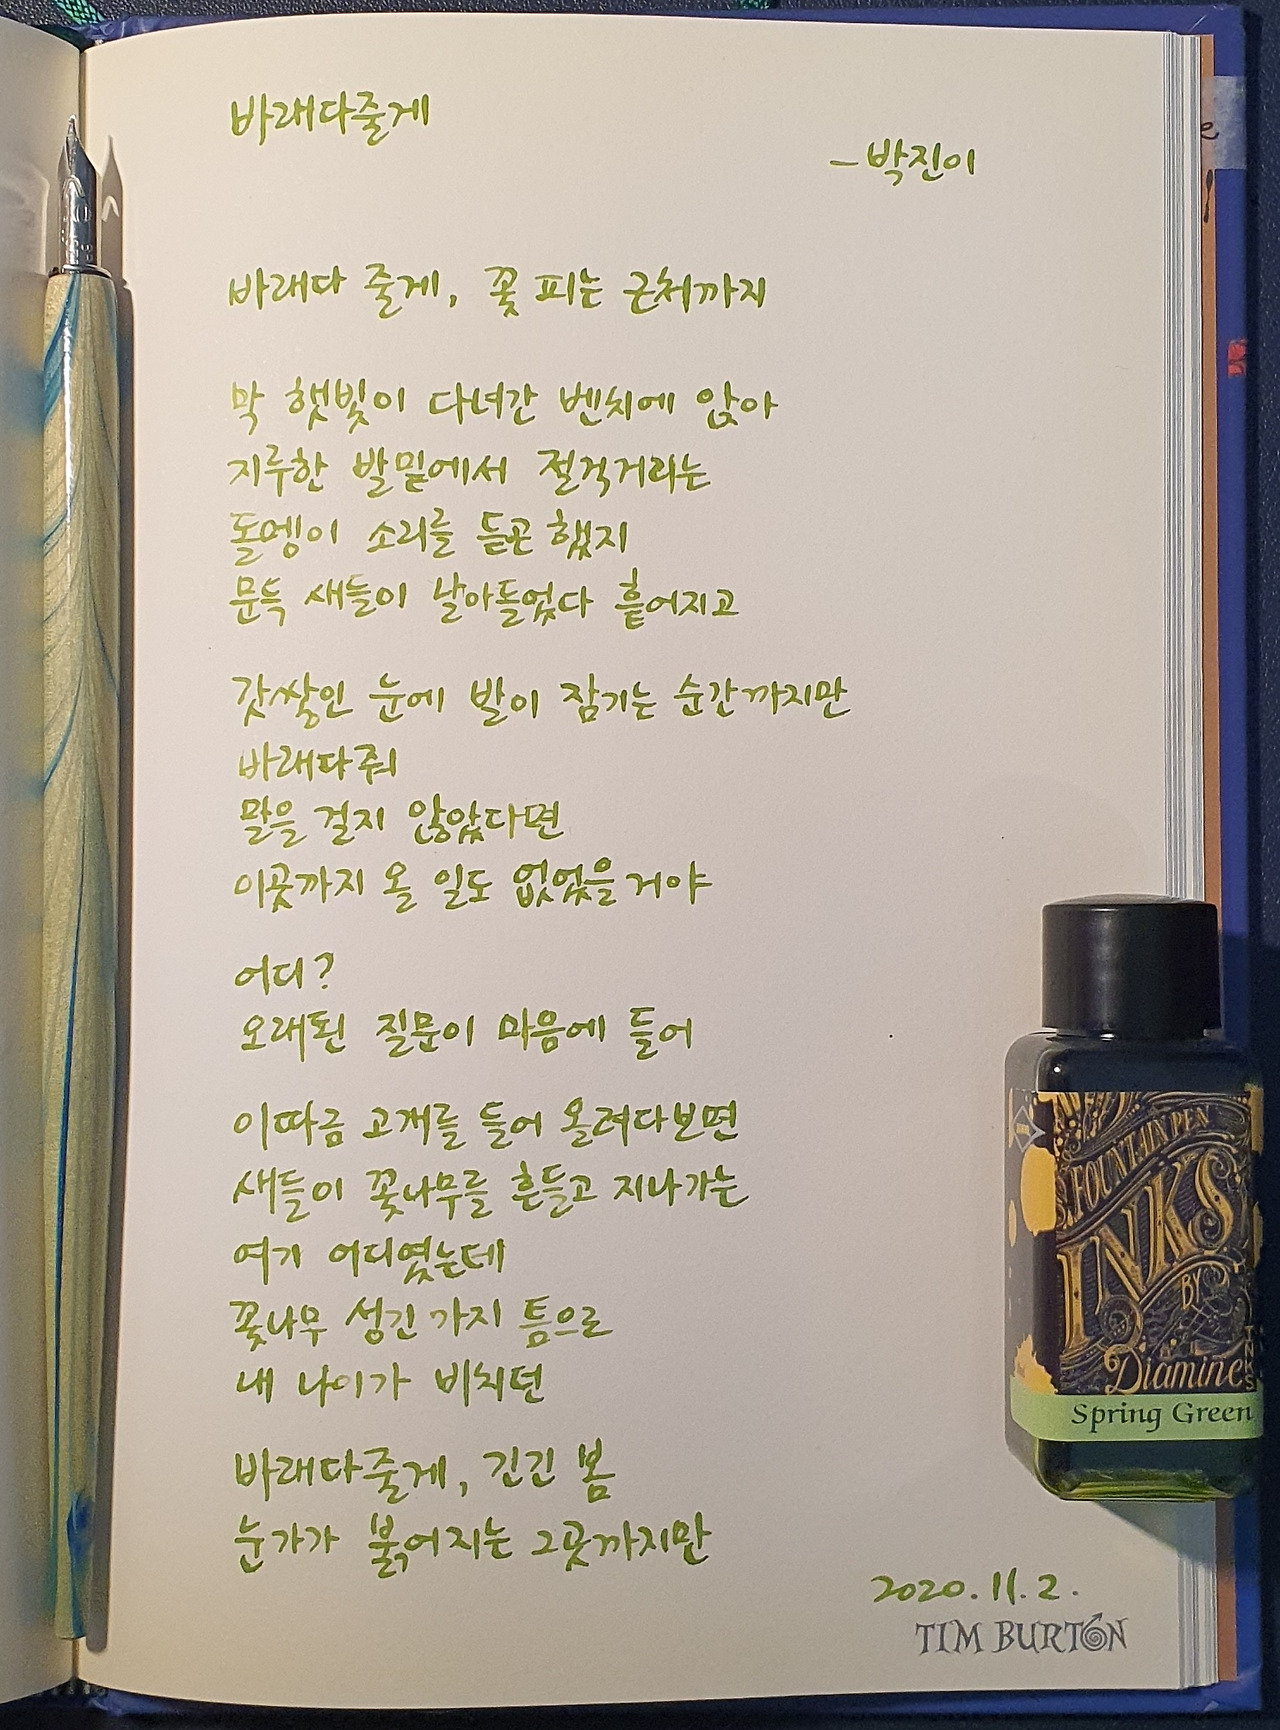 바래다줄게
- 박진이
바래다 줄게, 꽃 피는 근처까지
막 햇빛이 다녀간 벤치에 앉아
지루한 발밑에서 절걱거리는
돌멩이 소리를 듣곤 했지
문득 새들이 날아들었다 흩어지고
갓 쌓인 눈에 발이 잠기는 순간까지만
바래다줘
말을 걸지 않았다면
이곳까지 올 일도 없었을 거야
어디?
오래된 질문이 마음에 들어
이따금 고개를 들어 올려다보면
새들이 꽃나무를 흔들고 지나가는
여기 어디였는데
꽃나무 성긴 가지 틈으로
내 나이가 비치던
바래다줄게, 긴긴 봄
눈가가 붉어지는 그곳까지만
2020. 11. 2.
TIM BURTON
FOUNTAIN PEN
INKS
BY
Diamine
Spring Green